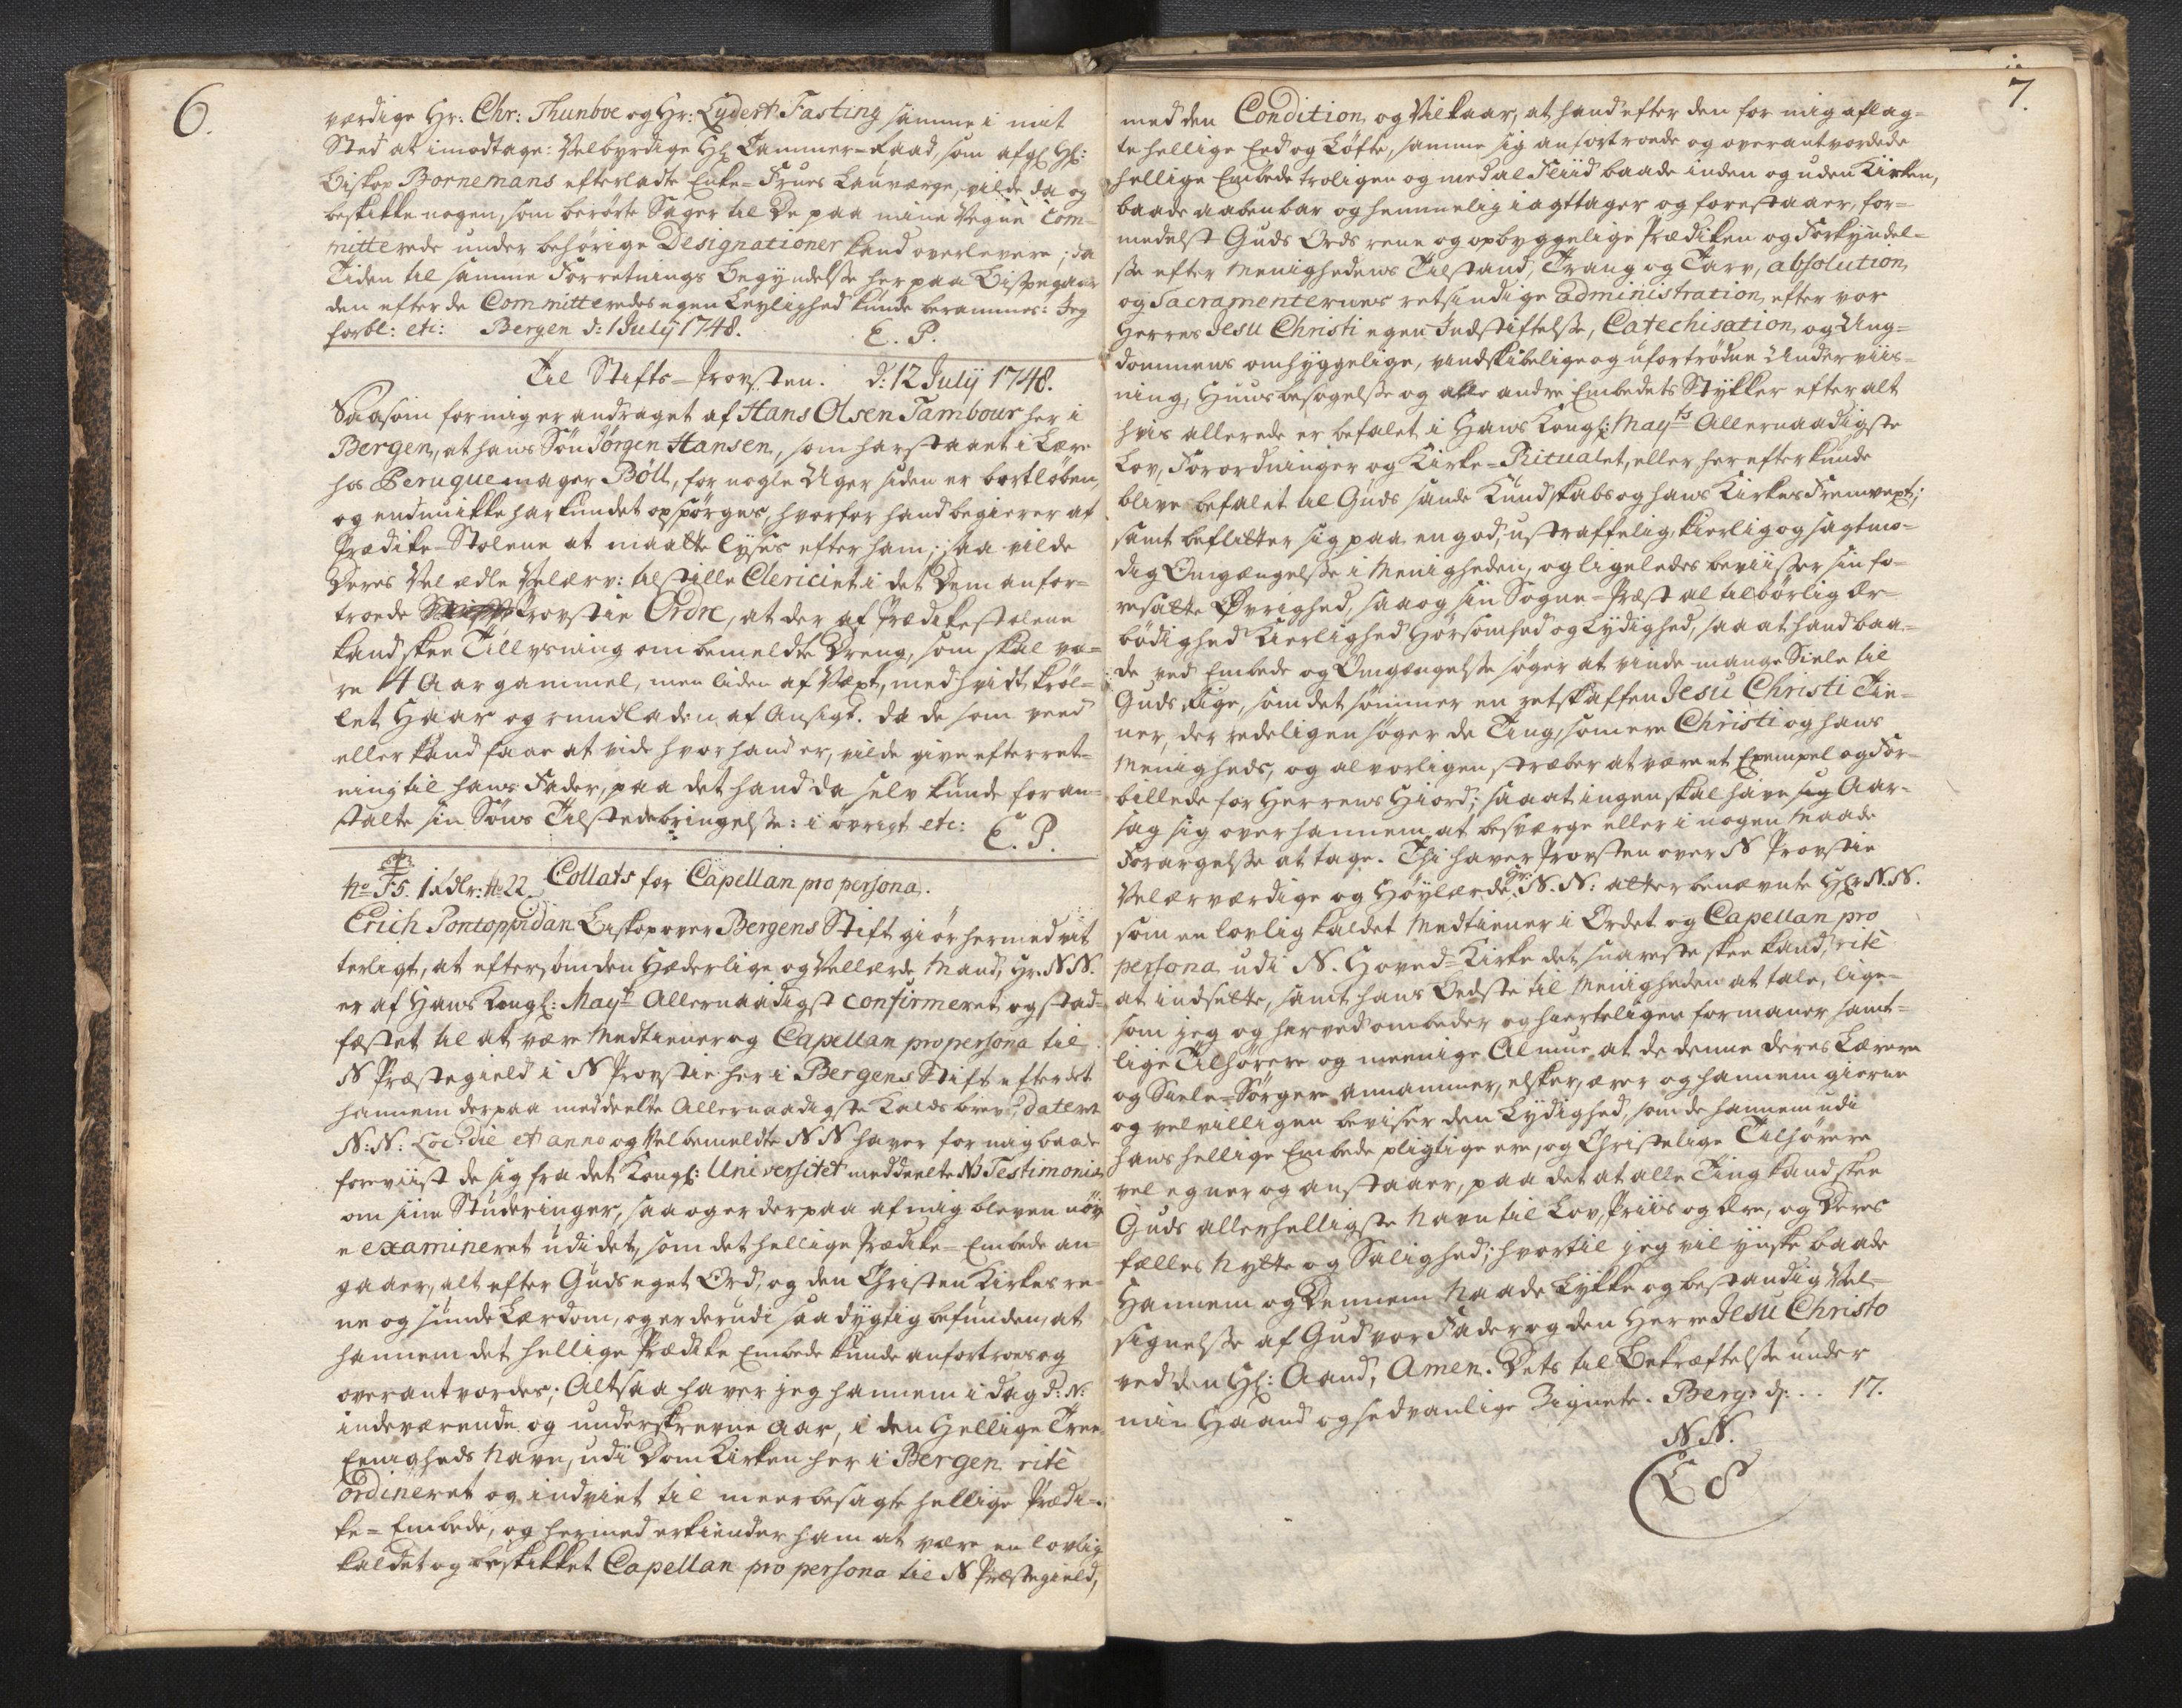 6.
værdige Hr: Chr: Thunboe og Hr: Lydert Fasting samme i mit
Sted at imodtage: Velbyrdige Hr Cammer=Raad, som afgl Hr:
Biskop Bornemans efterladte Enke=Frues Lauværge, vilde da og
beskikke nogen, som berørte Sager til De paa mine Vegne Com-
mitterede under behørige Designationer kand overlevere; da
Tiden til samme Forretnings Begyndelse her paa Bispegaar-
den efter de Committeredes egen Leylighed kunde berammes: Jeg
forbl: etc: Bergen d: 1 July 1748. E. P.
Til Stifts=Provsten. d: 12 July 1748.
Saasom for mig er andraget af Hans Olsen Tambour her i
Bergen, at hans Søn Jørgen Hansen, som har staaet i Lære
hos Peruquemager Böll, for nogle Uger siden er bortløben,
og endnu ikke har kundet opspørges, hvorfor hand begierer af
Prædike=Stolene at maatte lyses efter ham; saa vilde
Deres Vel ædle Velærv: tilstille Clericiet i det Dem anfor-
troede Provstie Ordre, at der af Prædikestolene
kand skee Tillysning om bemeldte Dreng, som skal væ-
re 14 Aar gammel, men liden af Vext, med hvidt krøl-
let Haar og rundladen af Ansigt. da de som veed
eller kand faae at vide hvor hand er, vilde give efterret-
ning til hans Fader, paa det hand da selv kunde foran-
stalte sin Søns Tilstedebringelse: i øvrigt etc: E. P.
No 5. 1 rdlr: No 22 Collats for Capellan pro persona.
Erich Pontoppidan Biskop over Bergens Stift giør hermed vit
terligt, at eftersom den Hæderlige og Vellærde Mand, Hr. NN.
er af Hans Kongl: Mayt Allernaadigst confirmeret og stad-
fæstet til at være Medtiener og Capellan pro persona til
N Præstegield i N Provstie her i Bergens Stift efter det
hannem derpaa meddeelte Allernaadigste Kaldsbrev, dateret
N: N: Loc: die et anno og Velbemeldte NN haver for mig baade
foreviist de sig fra det Kongl: Universitet meddeelte Testimonia
om sine Studeringer, saa og er derpaa af mig bleven nøy
e examineret udi det, som det hellige Prædike=Embede an-
gaaer, alt efter Guds eget Ord, og den Christen Kirkes re-
ne og sunde Lærdom, og er derudi saa dygtig befunden, at
hannem det hellige Prædike Embede kunde anfortroes og
overantvordes; Altsaa haver jeg hannem i Dag d: N:
indeværende og underskrevne Aar, i den Hellige Tree
Eenigheds Navn, udi Dom Kirken her i Bergen ritè
ordineret og indviet til meerbesagte hellige Prædi-
ke=Embede, og hermed erkiender ham at være en lovlig
kaldet og beskikket Capellan pro persona til N Præstegield,
7.
med den Condition og Vilkaar, at hand efter den for mig aflag-
te hellige Eed og Løfte, samme sig anfortroede og overantvordede
hellige Embede troligen og med al Fliid baade inden og uden Kirken,
baade aabenbar og hemmelig iagttager og forestaaer, for-
medelst Guds Ords rene og opbyggelige Prædiken og Forkyndel-
se efter Menighedens Tilstand, Trang og Tarv, absolution
og Sacramenternes retsindige administration efter vor
Herres Jesu Christi egen Indstiftelse, Catechisation og Ung-
dommens omhyggelige, vindskibelige og ufortrødne Underviis-
ning, Huusbesøgelse og alle andre Embedets Stykker efter alt
hvis allerede er befalet i Hans Kongl: Mayts Allernaadigste
Lov, Forordninger og Kirke=Ritualet, eller herefter kunde
blive befalet til Guds sande Kundskabs og hans Kirkes Fremvext;
samt beflitter sig paa en god, ustraffelig, kierlig og sagtmo-
dig Omgængelse i Menigheden, og ligeledes beviiser sin fo-
resatte Øvrighed, saa og sin Sogne=Præst al tilbørlig Ær-
bødighed Kierlighed Hørsomhed og Lydighed, saa at hand baa-
de ved Embede og Omgængelse søger at vinde mange Siele til
Guds Rige, som det sømmer en retskaffen Jesu Christi Tie-
ner, der redeligen søger de Ting, som ere Christi og hans
Menigheds, og alvorligen stræber at være et Exempel og For-
billede for Herrens Hiord; saa at ingen skal have sig Aar-
sag sig over hannem at besværge eller i nogen Maade
Forargelse at tage. Thi haver Provsten over N Provstie
Velærværdige og Høylærde Hr: N. N: atter benævnte Hr N.N.
som en lovlig kaldet Medtiener i Ordet og Capellan pro
persona udi N. Hoved=Kirke det snareste skee kand, ritè
at indsette, samt hans Bedste til Menigheden at tale, lige-
som jeg og herved ombeder og hierteligen formaner samt-
lige Tilhørere og meenige Almue at de denne deres Lærere
og Siele=Sørgere annammer, elsker, ærer og hannem gierne
og velvilligen beviser den Lydighed, som de hannem udi
hans hellige Embede pligtige ere, og Christelige Tilhørere
vel egner og anstaaer, paa det at alle Ting kand skee
Guds allerhelligste Navn til Lov, Priis og Ære, og Deres
fælles Nytte og Salighed; hvortil jeg vil ynske baade
Hannem og Dennem Naade Lykke og bestandig Vel-
signelse af Gud vor Fader og den Herre Jesu Christo
ved den Hl: Aand, Amen. Dets til Bekræftelse under
min Haand og sedvanlige Zignete. Berg: d: .. 17.
N N.
L S